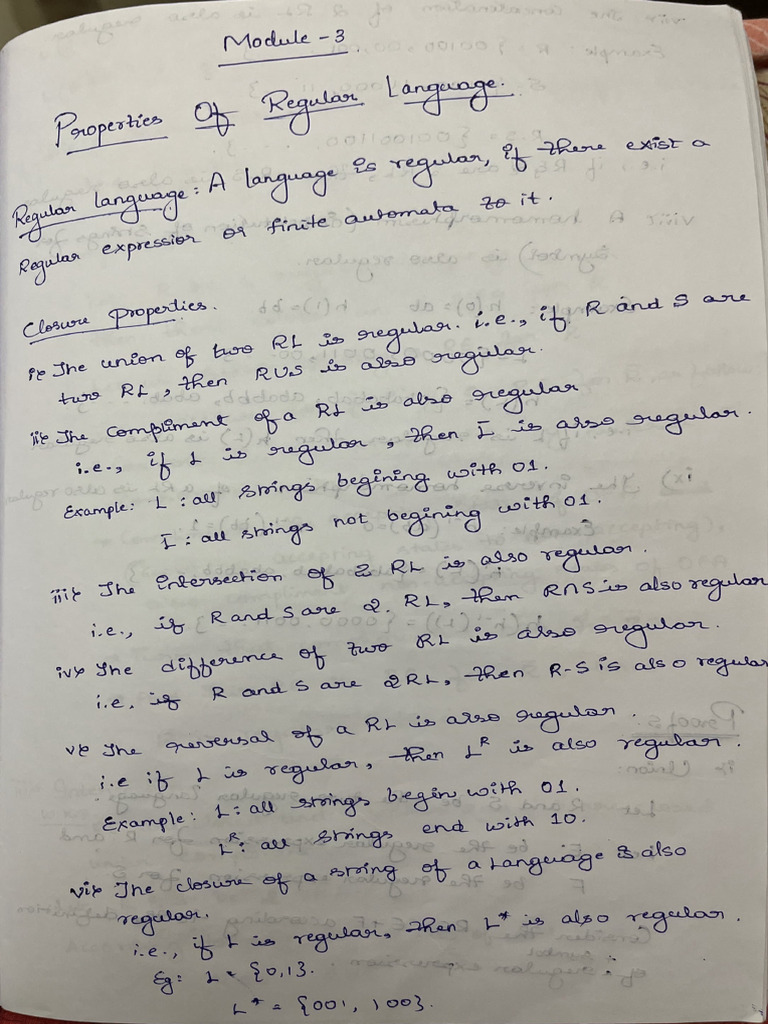 Module - 3
Properties Of Regular Language.
Regular language: A language is regular, if there exist a
Regular expression or finite automata to it.
Closure properties.
i) The union of two RL is regular. i.e., if R and S are
two RL, then RUS is also regular.
ii) The compliment of a RL is also regular
i.e., if L is regular, then L̅ is also regular.
Example: L : all strings begining with 01.
L̅ : all strings not begining with 01.
iii) The intersection of 2 RL is also regular.
i.e., if R and S are 2 RL, then R∩S is also regular
iv) The difference of two RL is also regular.
i.e. if R and S are 2RL, then R-S is also regular
v) The reversal of a RL is also regular.
i.e if L is regular, then L^R is also regular.
Example: L: all strings begin with 01.
L^R: all strings end with 10.
vi) The closure of a string of a Language is also
regular.
i.e., if L is regular, then L* is also regular.
Eg: L = {0,1}.
L* = {001, 100}.